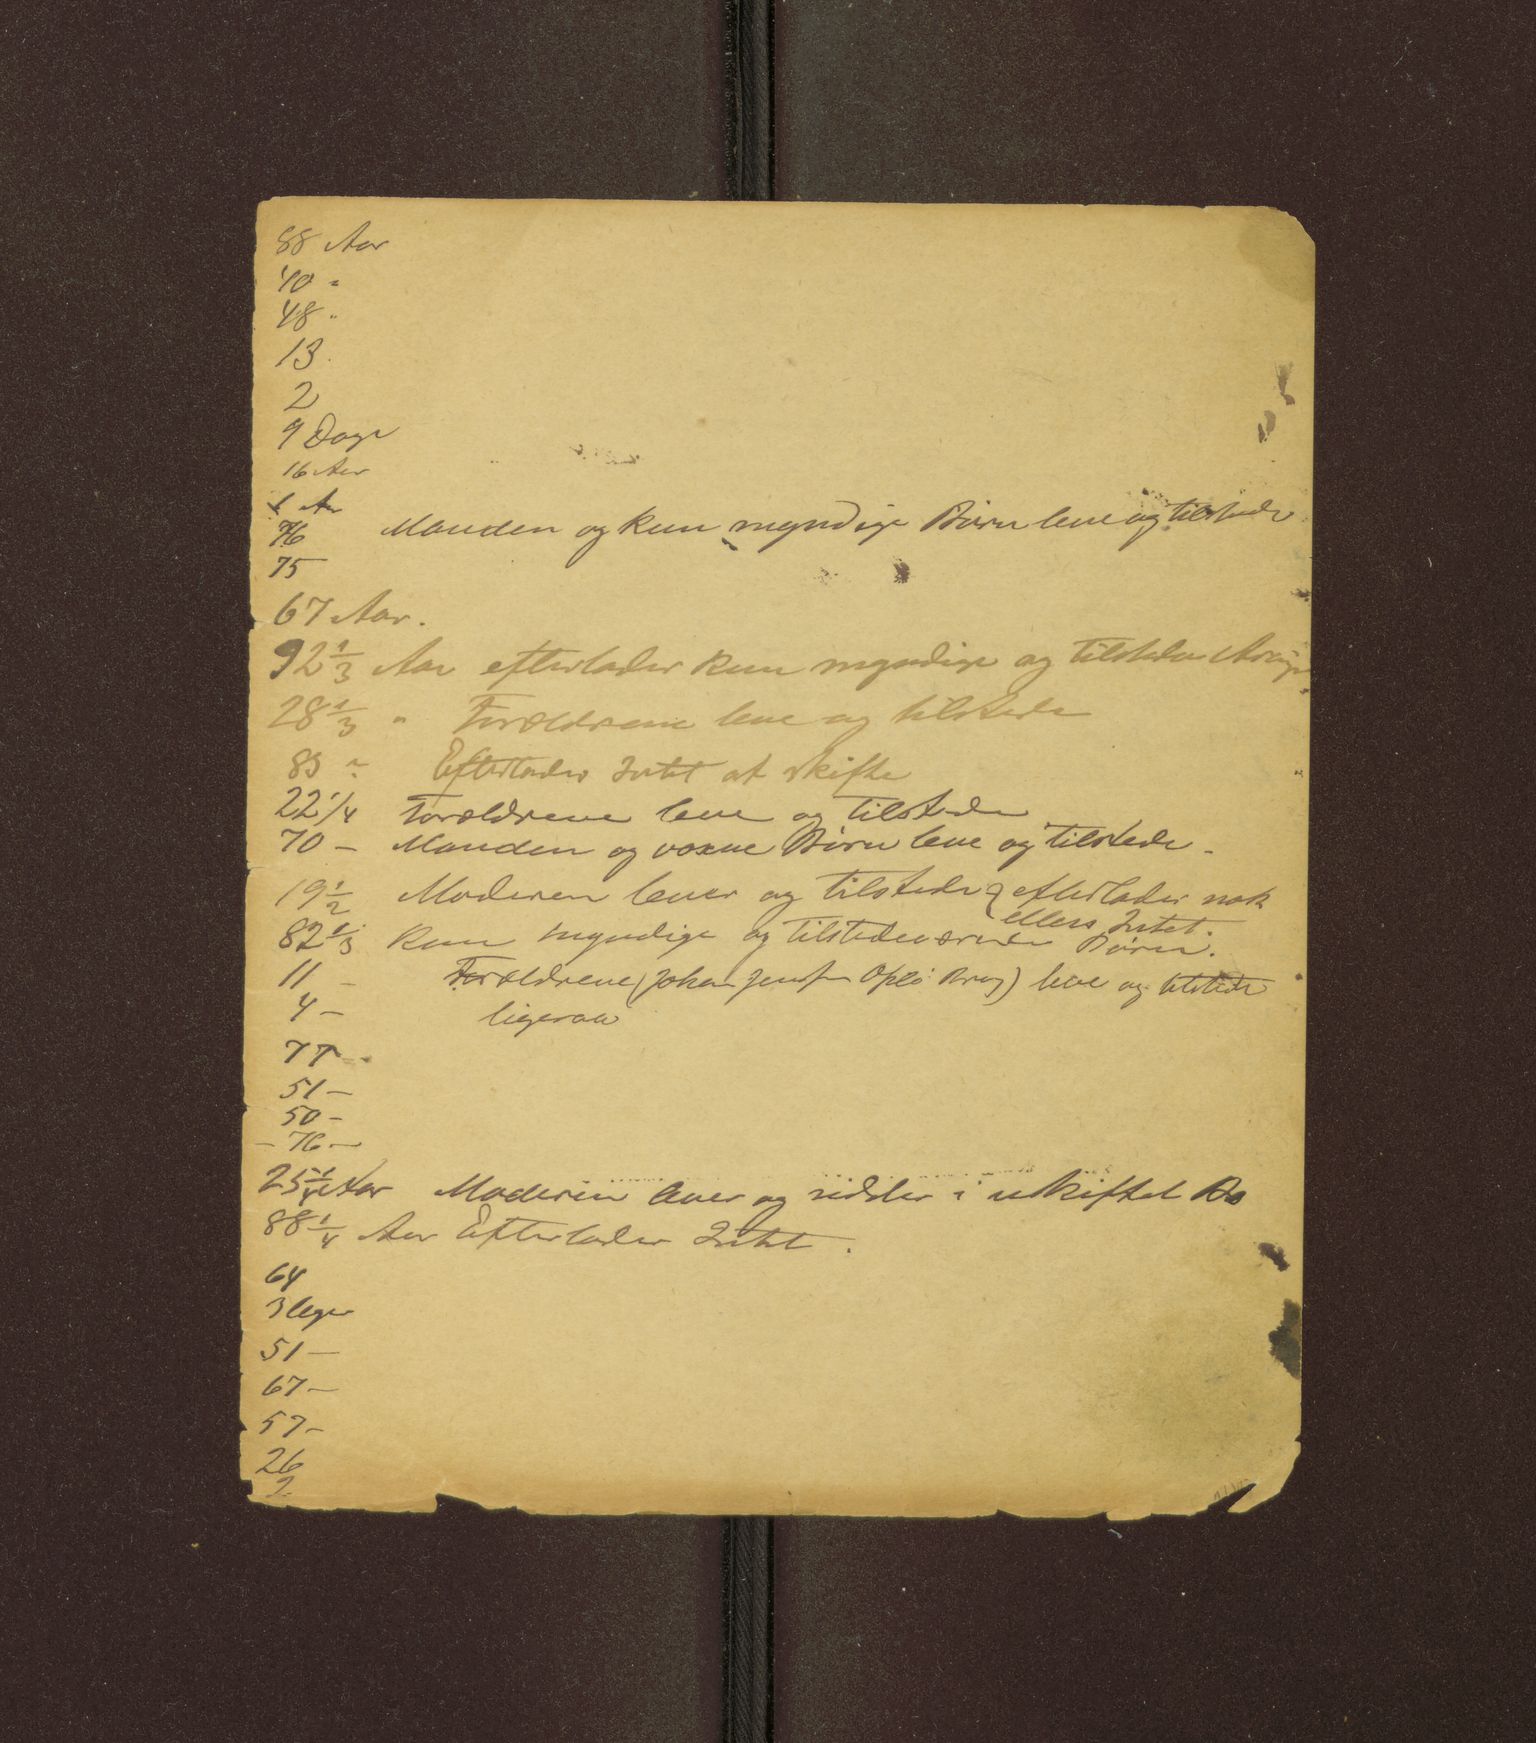 88 Aar
40 "
48 "
13
2
9 Dage
16 Aar
1 Aar
76 Manden og kun myndige Børn leve og tilstede
75
67 Aar.
92 1/3 Aar efterlader kun myndige og tilstedev Arvinger
28 1/3 " Forældrene leve og tilstede
83 " Efterlader Intet at skifte
22 1/4 Forældrene leve og tilstede
70 – Manden og voxne Børn leve og tilstede –
19 1/2 Moderen lever og tilstede efterlader nok
ellers Intet.
82 1/3 Kun myndige og tilstedeværende Børn.
11 – Forældrene (Johan Opsö Brug) leve og tilstede
4 – ligesaa
77 –
51 –
50 –
– 76 –
25 1/4 Aar Moderen lever og sidder i uskiftet Bo
88 1/4 Aar Efterlader Intet.
64
3
51 –
67 –
57 –
26
2